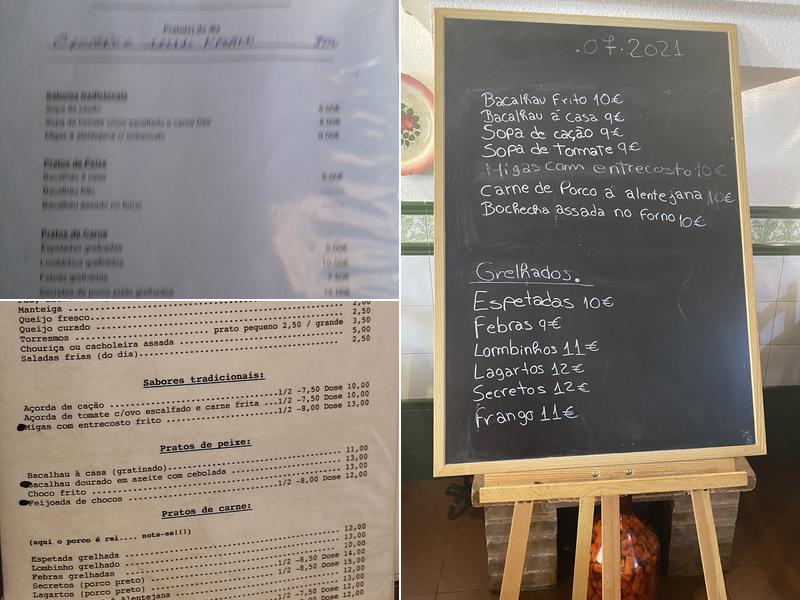 Prato(s) do dia
Sabores tradicionais
Sopa de cação 8.00€
Sopa de tomate c/ovo escalfado e carne frita 8.00€
Migas à alentejana c/ entrecosto 9.00€
Pratos de Peixe
Bacalhau à casa 8.00€
Bacalhau frito
Bacalhau assado no forno
Pratos de Carne
Espetadas grelhadas 9.00€
Lombinhos grelhados 10.00€
Febras grelhadas 7.50€
Secretos de porco preto grelhados
Manteiga
Queijo fresco 2,50
Queijo curado prato pequeno 2,50 / grande 3,50
Torresmos 5,00
Chouriça ou cacholeira assada 2,50
Saladas frias (do dia)
Sabores tradicionais:
Açorda de cação 1/2 -7,50 Dose 10,00
Açorda de tomate c/ovo escalfado e carne frita 1/2 -7,50 Dose 10,00
Migas com entrecosto frito 1/2 -8,00 Dose 13,00
Pratos de peixe:
Bacalhau à casa (gratinado) 11,00
Bacalhau dourado em azeite com cebolada 13,00
Choco frito 13,00
Feijoada de chocos 1/2 -8,00 Dose 12,00
Pratos de carne:
(aqui o porco é rei.... nota-se!!!)
Espetada grelhada 12,00
Lombinho grelhado 13,00
Febras grelhadas 10,00
Secretos (porco preto) 1/2 -8,50 Dose 14,00
Lagartos (porco preto) 1/2 -8,50 Dose 15,00
.07.2021
Bacalhau Frito 10€
Bacalhau à Casa 9€
Sopa de cação 9€
Sopa de tomate 9€
Migas com entrecosto 10€
Carne de Porco à alentejana 10€
Bochecha assada no Forno 10€
Grelhados.
Espetadas 10€
Febras 9€
Lombinhos 11€
Lagartos 12€
Secretos 12€
Frango 11€